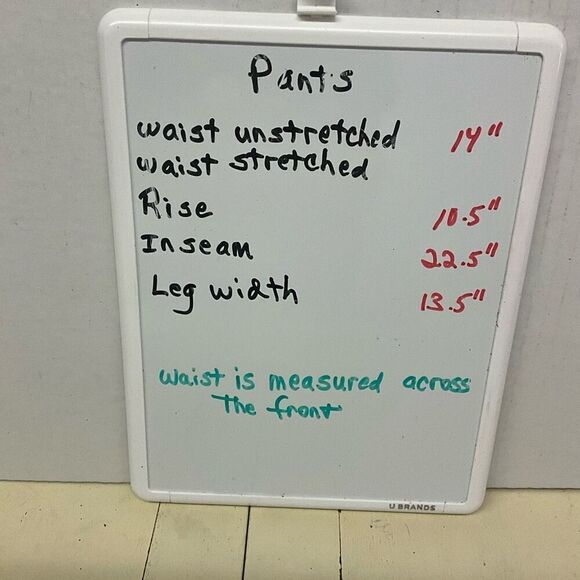 Pants
waist unstretched 14"
waist stretched
Rise 10.5"
Inseam 22.5"
Leg width 13.5"
waist is measured across
The front
U BRANDS